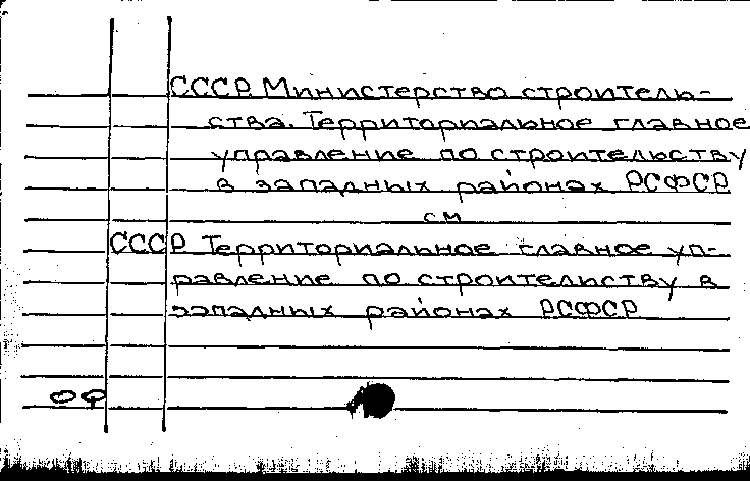 СССР. Министерство строитель-
ства. Территориальное главное
управление по строительству
в западных районах РСФСР
см
СССР. Территориальное главное уп-
равление по строительству в
западных районах РСФСР
ОФ